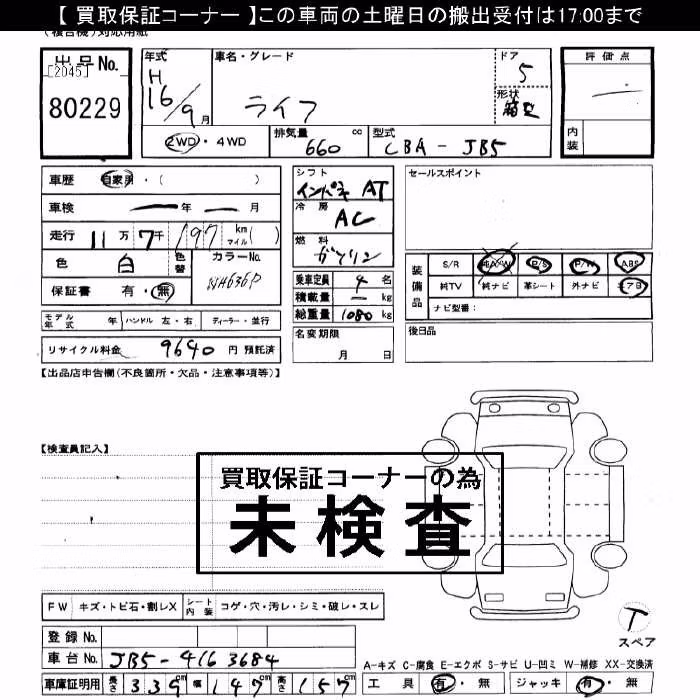 【 買取保証コーナー 】この車両の土曜日の搬出受付は17:00まで
(複合機)対応用紙
出品No.
[2045]
80229
年式
H
16/9月
車名・グレード
ライフ
ドア
5
形状
評価点
内装
2WD・4WD
排気量
660 cc
型式
CBA - JB5
車歴 自家用・( )
車検 ー年 ー月
走行 11万 7千 197 km マイル( )
色 白
色替
カラーNo.
NH636P
保証書 有・無
モデル年式 年
ハンドル 左・右
ディーラー・並行
リサイクル料金 9640 円 預託済
シフト
インパネ AT
冷房
AC
燃料
ガソリン
乗車定員 4 名
積載量 ー kg
総重量 1080 kg
名変期限
月 日
セールスポイント
装備品
S/R A/W P/S P/W ABS
純TV 純ナビ 革シート 外ナビ エアB
ナビ型番：
後日品
【出品店申告欄(不良箇所・欠品・注意事項等)】
【検査員記入】
買取保証コーナーの為
未検査
FW キズ・トビ石・割レX
シート内装 コゲ・穴・汚レ・シミ・破レ・スレ
T
スペア
登録No.
車台No. JB5-4163684
車庫証明用 長さ 339 cm 幅 147 cm 高さ 157 cm
A-キズ C-腐食 E-エクボ S-サビ U-凹ミ W-補修 XX-交換済
工具 有・無 ジャッキ 有・無